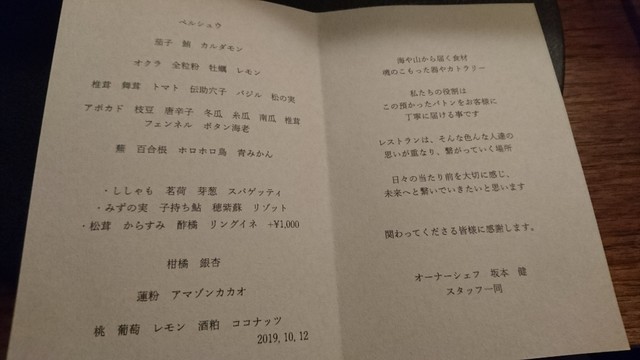 ペルシュウ
茄子 鮪 カルダモン
オクラ 全粒粉 牡蠣 レモン
椎茸 舞茸 トマト 伝助穴子 バジル 松の実
アボカド 枝豆 唐辛子 冬瓜 糸瓜 南瓜 椎茸
フェンネル ボタン海老
蕪 百合根 ホロホロ鳥 青みかん
・ししゃも 茗荷 芽葱 スパゲッティ
・みずの実 子持ち鮎 穂紫蘇 リゾット
・松茸 からすみ 酢橘 リングイネ +¥1,000
柑橘 銀杏
蓮粉 アマゾンカカオ
桃 葡萄 レモン 酒粕 ココナッツ
2019.10.12
海や山から届く食材
魂のこもった器やカトラリー
私たちの役割は
この預かったバトンをお客様に
丁寧に届ける事です
レストランは、そんな色んな人達の
思いが重なり、繋がっていく場所
日々の当たり前を大切に感じ、
未来へと繋いでいきたいと思います
関わってくださる皆様に感謝します。
オーナーシェフ 坂本 健
スタッフ一同